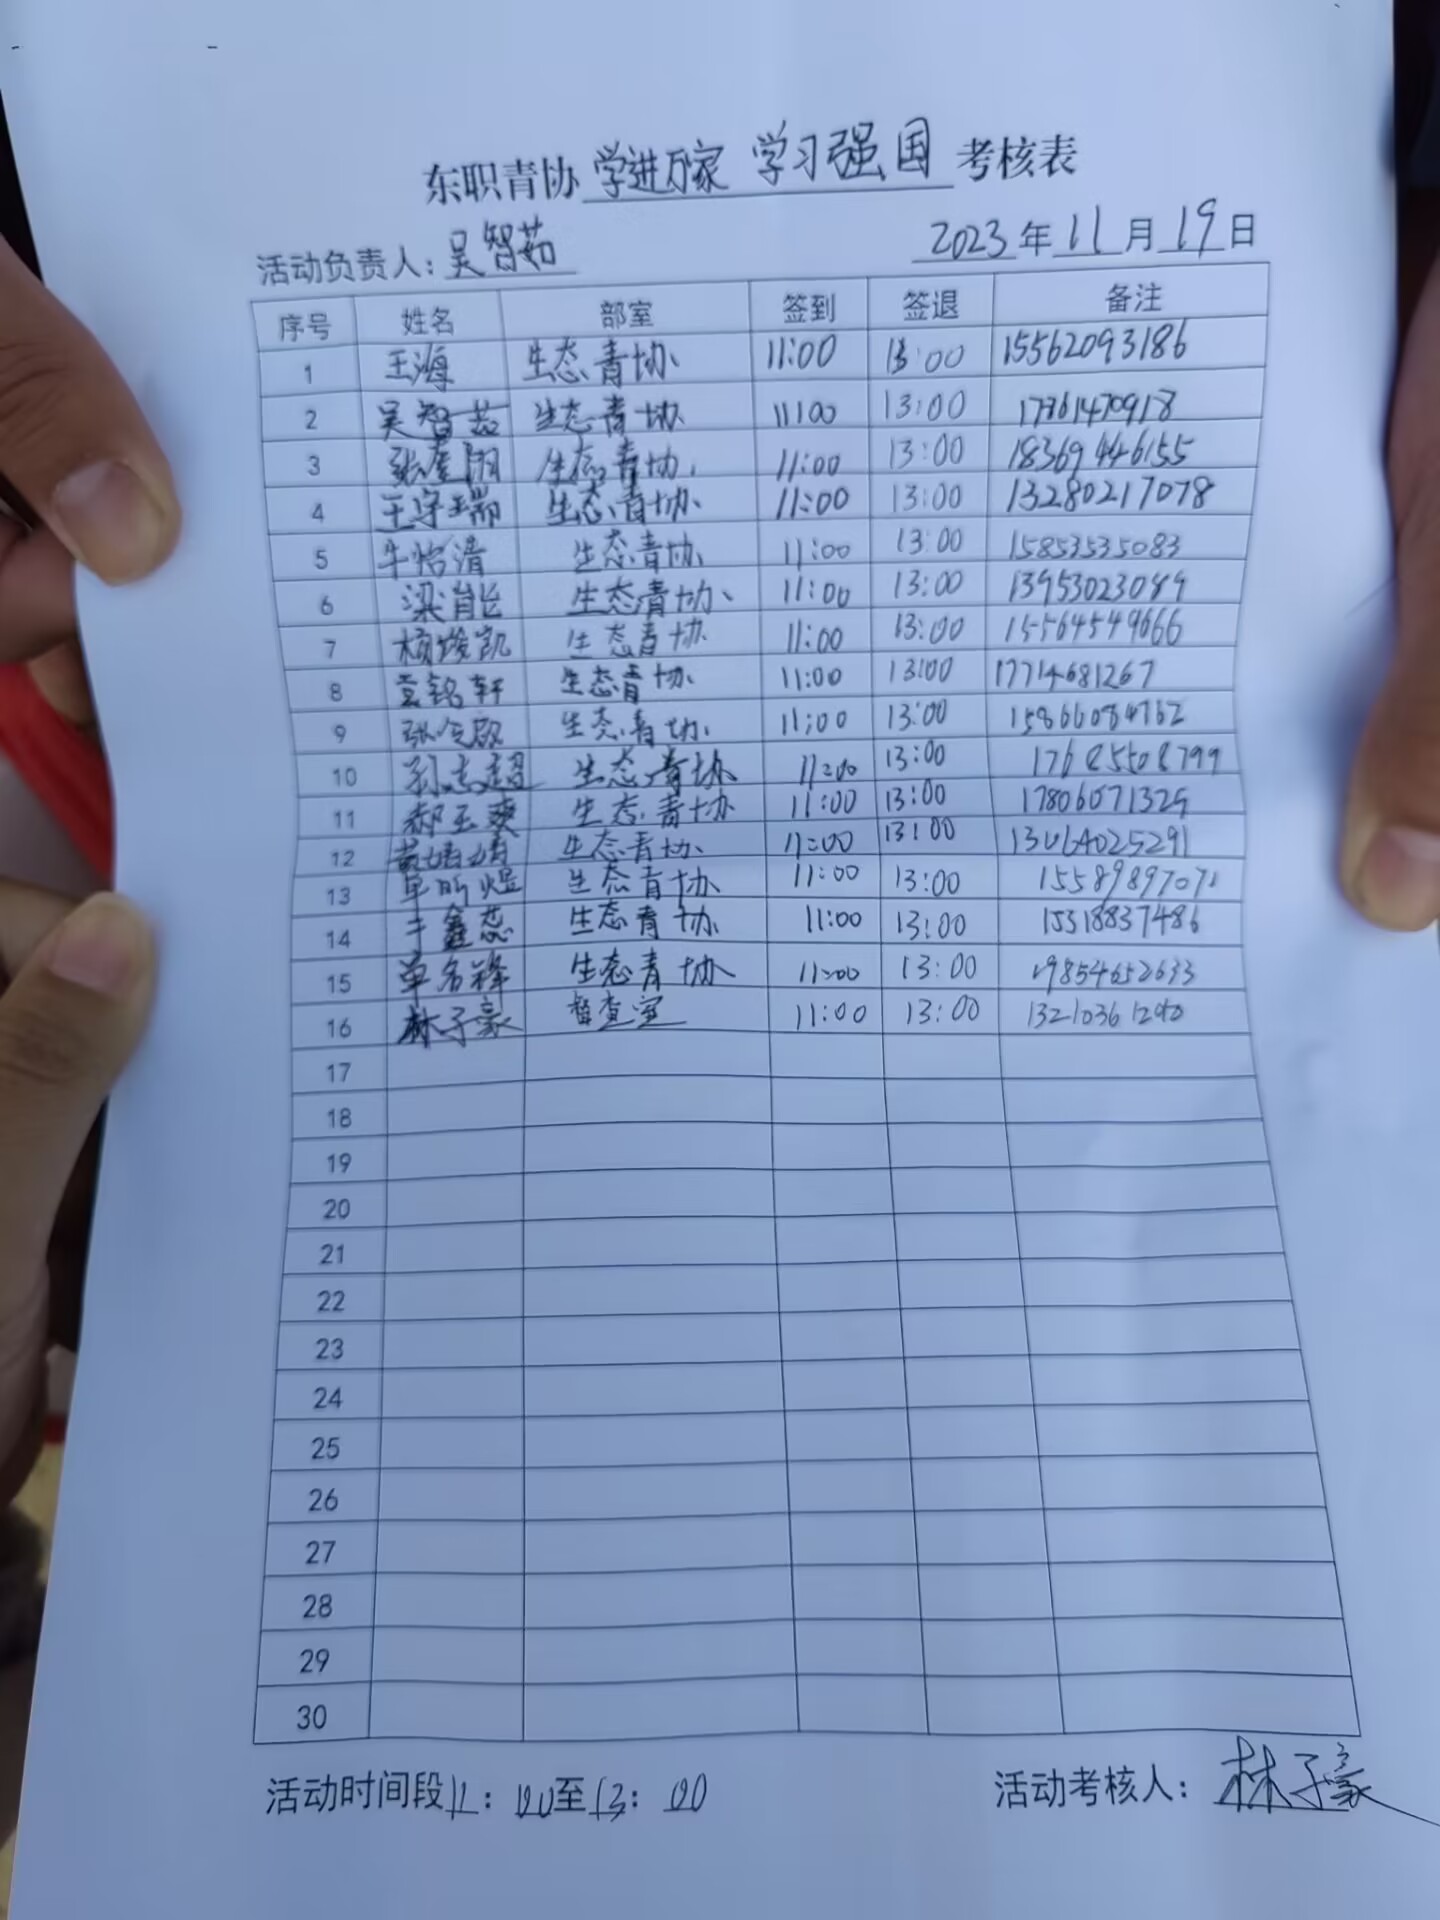 东职青协 学进万家 学习强国 考核表
活动负责人: 吴智茹 2023年11月19日
序号 姓名 部室 签到 签退 备注
1 王海 生态青协 11:00 13:00 15562093186
2 吴智茹 生态青协 11:00 13:00 17861470918
3 生态青协 11:00 13:00 18369446155
4 王宇瑞 生态青协 11:00 13:00 13280217078
5 牛怡清 生态青协 11:00 13:00 15853535083
6 梁肖能 生态青协 11:00 13:00 13953023089
7 杨竣凯 生态青协 11:00 13:00 15564549666
8 袁铭轩 生态青协 11:00 13:00 17714681267
9 生态青协 11:00 13:00 15866084762
10 孙志超 生态青协 11:00 13:00
11 郝玉爽 生态青协 11:00 13:00 17806071329
12 黄婧婧 生态青协 11:00 13:00 13064025291
13 单昕煜 生态青协 11:00 13:00 15589897071
14 于鑫蕊 生态青协 11:00 13:00 15318837486
15 单名锋 生态青协 11:00 13:00 19854652633
16 林子豪 督查室 11:00 13:00
17
18
19
20
21
22
23
24
25
26
27
28
29
30
活动时间段11:00至13:00 活动考核人: 林子豪